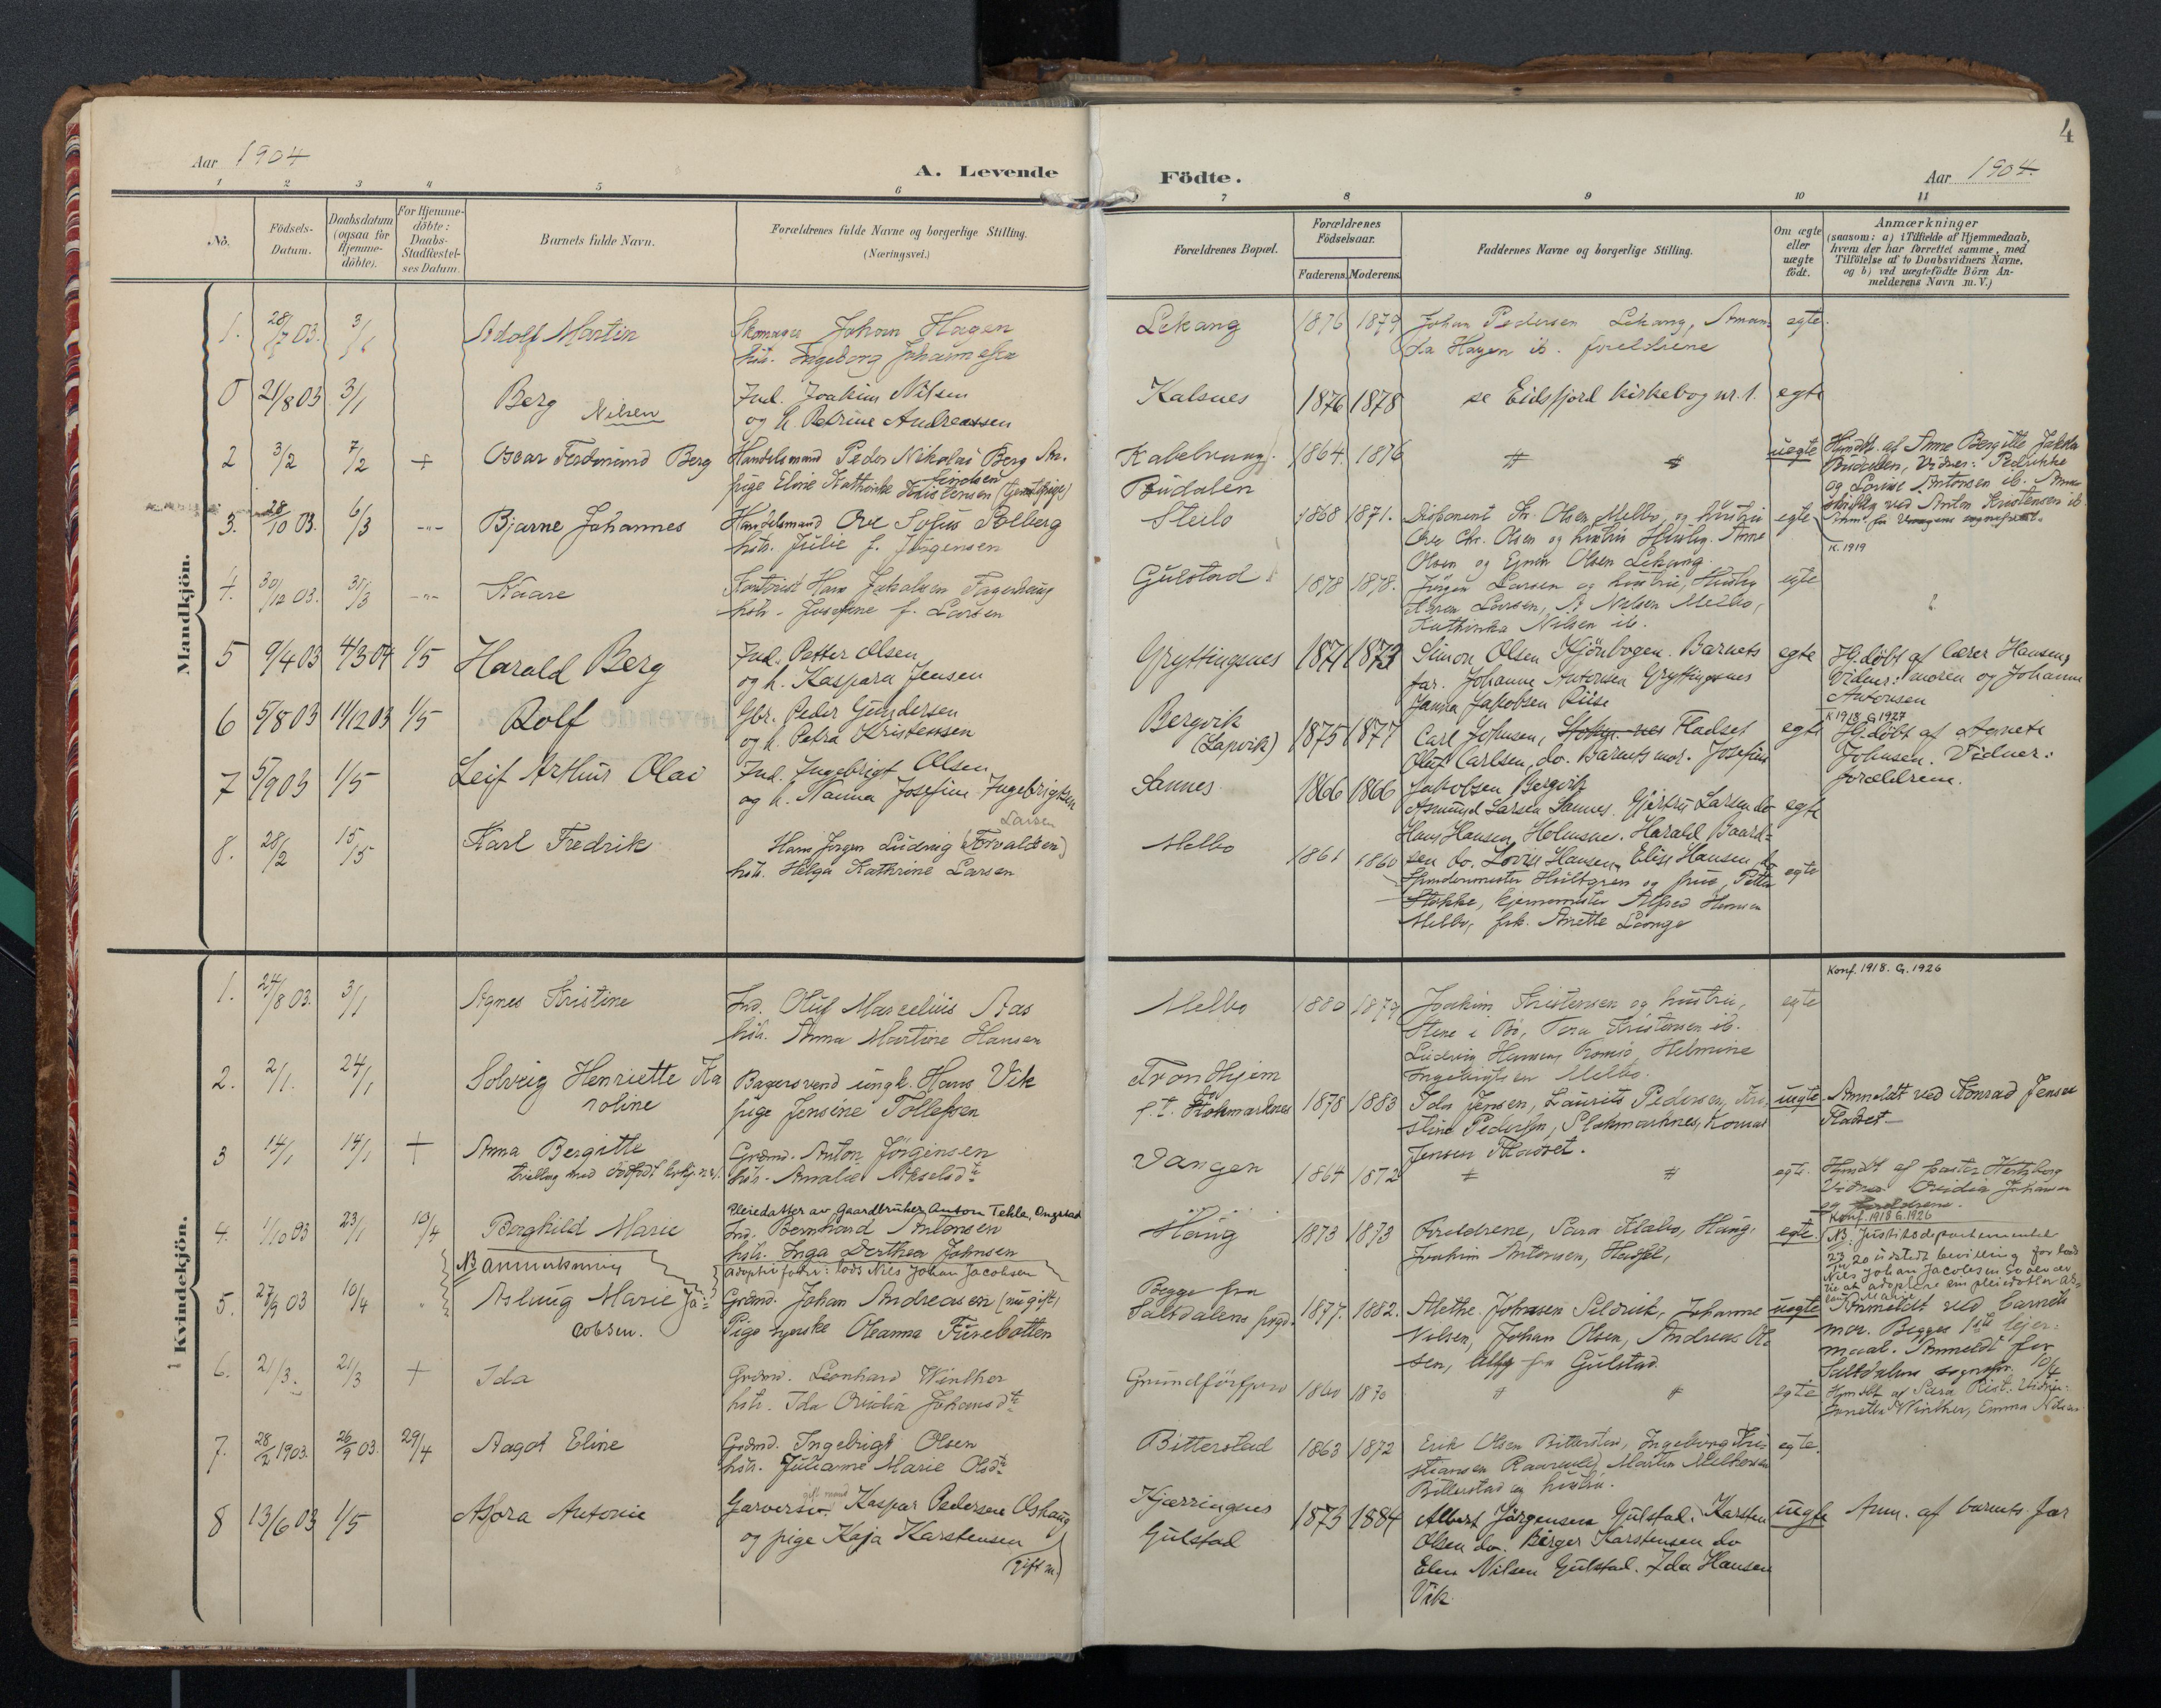 Aar 1904
A. Levende
Födte.
Aar 1904.
4
1 2 3 4 5 6 7 8 9 10 11
No.
Födsels-Datum.
Daabsdatum (ogsaa for Hjemme-döbte).
For Hjemme-döbte: Daabs-Stadfæstel-ses Datum.
Barnets fulde Navn.
Forældrenes fulde Navne og borgerlige Stilling.
(Næringsvei.)
Forældrenes Bopæl.
Forældrenes Födselsaar.
Faderens. Moderens.
Faddernes Navne og borgerlige Stilling.
Om ægte eller uægte födt.
Anmærkninger
(saasom: a) i Tilfælde af Hjemmedaab, hvem der har forrettet samme, med Tilföielse af to Daabsvidners Navne, og b) ved uægtefödte Börn An-melderens Navn m. V.)
Mandkjön.
1. 28/7 03. 3/1 Adolf Martin Skomager Johan Hagen
hstr. Ingeborg Johannesen
Lekang 1876 1879 Johan Pedersen Lekang, Aman-
da Hagen ib. foreldrene
egte.
0 21/8 03 3/1 Berg Nilsen
Ind. Joakim Nilsen
og h. Petrine Andreassen
Kalsnes 1876 1878 se Eidsfjord kirkebog nr. 1. egte
2 3/2 7/2 + Oscar Ferdinand Berg Handelsmand Peder Nikolai Berg
pige Eline Kathinke Kristensen (tjenestpige)
Budalen 1864. 1876 uegte
Hjmdt. af Anne Bergitte
Budalen, Vidner: Fredrikke
og Lovise Antonsen ib.
ved Anton Kristensen ib
3. 28/10 03. 6/3 -"- Bjarne Johannes Handelsmand Ove Sofus Solberg
hstr. Julie f. Jörgensen
Steilo 1868 1871. Disponent Fr. Olsen Melbo, og hustru
Ove Chr. Olsen og hustru Anne
Olsen og Ejnar Olsen Lekang.
egte
K. 1919
4. 30/12 03. 31/3 -"- Kaare Kontorist Hans Jakobsen Fagerhaug
hstr. Josefine f. Larsen
Gulstad 1878 1878. Jörgen Larsen og hustru,
Karen Larsen, A Nilsen Melbo,
Kathinka Nilsen ib.
egte
5 9/4 03 4/3 04 1/5 Harald Berg
Ind. Petter Olsen
og h. Kaspara Jensen
Gryttingsnes 1871 1873 Simon Olsen Kjönbogen. Barnets
far. Johanne Antonsen Gryttingsnes
Janna Jakobsen Riise
egte Hj.döbt af lærer Hansen,
Vidner: moren og Johanne
Antonsen
K 1918 G 1927
6 5/8 03 11/12 03 1/5 Rolf
Gbr. Peder Gundersen
og h. Petra Kristensen
Bergvik
(Lapvik) 1875 1877 Carl Johnsen, Fladset
Oluf Carlsen, do. Barnets mor. Josefine
Jakobsen Bergvik
egte Hj.döbt af Agnete
Johnsen. Vidner:
forældrene.
7 5/9 03 1/5 Leif Arthur Olai
Ind. Ingebrigt Olsen
og h. Nanna Josefine Ingebrigtsen
Sannes 1866 1866 Asmund Larsen Sannes. Gjertru Larsen do
Hans Hansen, Holmsnes. Harald Baard-
sen do. Lovise Hansen, Elise Hansen, do
egte
8. 28/2 15/5 Karl Fredrik
Larsen
Hans Jörgen Ludvig (Torvaldsen)
hstr. Helga Kathrine Larsen
Melbo 1861 1860 Spindemester Hultgren og frue, Petter
Stokke, Alfred Hansen
Melbo, frk. Anette Lange
egte
Kvindekjön.
1. 24/8 03. 3/1 Agnes Kristine Ind. Oluf Marcelius Aas
hstr. Anna Martine Hansen
Melbo 1880 1877 Joakim Kristensen og hustru,
Stene i Bö, Tora Kristensen ib.
Ludvig Hansen, Tromsö, Helmine
Ingebrigtsen Melbo.
egte
Konf. 1918. G. 1926
2. 2/1. 24/1 Solveig Henriette Ka
roline
Bagersvend ungk. Hans Vik
pige Jensine Tollefsen
Trondhjem
p.t. Stokmarknes 1878 1883 Ida Jensen, Laurits Pedersen, Kri-
stine Pedersen, Stokmarknes, Konrad
Jensen Fladset.
uegte Anmeldt ved Konrad Jensen
Fladset
3 14/1 14/1 + Anna Bergitte
tvilling med dödfödt
Grdmd. Anton Jörgensen
hstr. Amalie Akselsdtr
Vangen 1864 1872 egte. Hjmdt af pastor Hertzberg
Vidner Ovidia Johansen
og foreldrene.
4. 1/10 03 23/1 10/4 Borghild Marie
NB anmerkning
Pleiedatter av Gaardbruker Anton Tehla, Ongstad
Ind. Bernhard Antonsen
hstr. Inga Dorthea Johnsen
adoptivfader: lods Nils Johan Jacobsen
Haug 1873 1873 Foreldrene, Sara Haug,
Joakim Antonsen, Hadsel,
egte.
Konf. 1918 G. 1926
NB. Justitsdepartementet
20 utstedt bevilling for lods
Nils Johan Jacobsen
til at adoptere sin pleiedatter
Marie
5. 27/9 03 10/4 Aslaug Marie Ja-
cobsen.
Grdmd. Johan Andreasen (nu gift)
Pige nyerske Oleanna Furebotten
Begge fra
Saltdalens 1877. 1882. Alethe Johnsen Sildvik, Johanne
Nilsen, Johan Olsen, Andreas Ol-
sen, alle fra Gulstad.
uegte Anmeldt ved barnets
mor. Begges 1ste lejer-
maal. Anmeldt for
Saltdalens sogn 10/4
6. 21/3. 21/3 + Ida Grdmd. Leonhard Winther
hstr. Ida Ovidia Johansdtr
Grundförfjord 1860 1870 egte Hjmdt af Sara Vidner:
Winther, Emma Nilsen
7. 28/2 1903. 26/9 03. 29/4 Aagot Eline Grdmd. Ingebrigt Olsen
hstr. Julianne Marie Olsdtr
Bitterstad 1863 1872 Erik Olsen Bitterstad, Ingeborg Kris
tiansen Martin Melkersen
Bitterstad og hustru.
egte.
8 13/6 03 1/5 Asora Antonie
gift mand
Garversv. Kaspar Pedersen Olshaug
og pige Kaja Karstensen
(gift m.)
Kjærringnes
Gulstad 1873 1884 Albert Jörgensen Gulstad. Karsten
Olsen do. Birger Karstensen do
Elen Nilsen Gulstad. Ida Hansen
Vik
uegte Anm. af barnets far